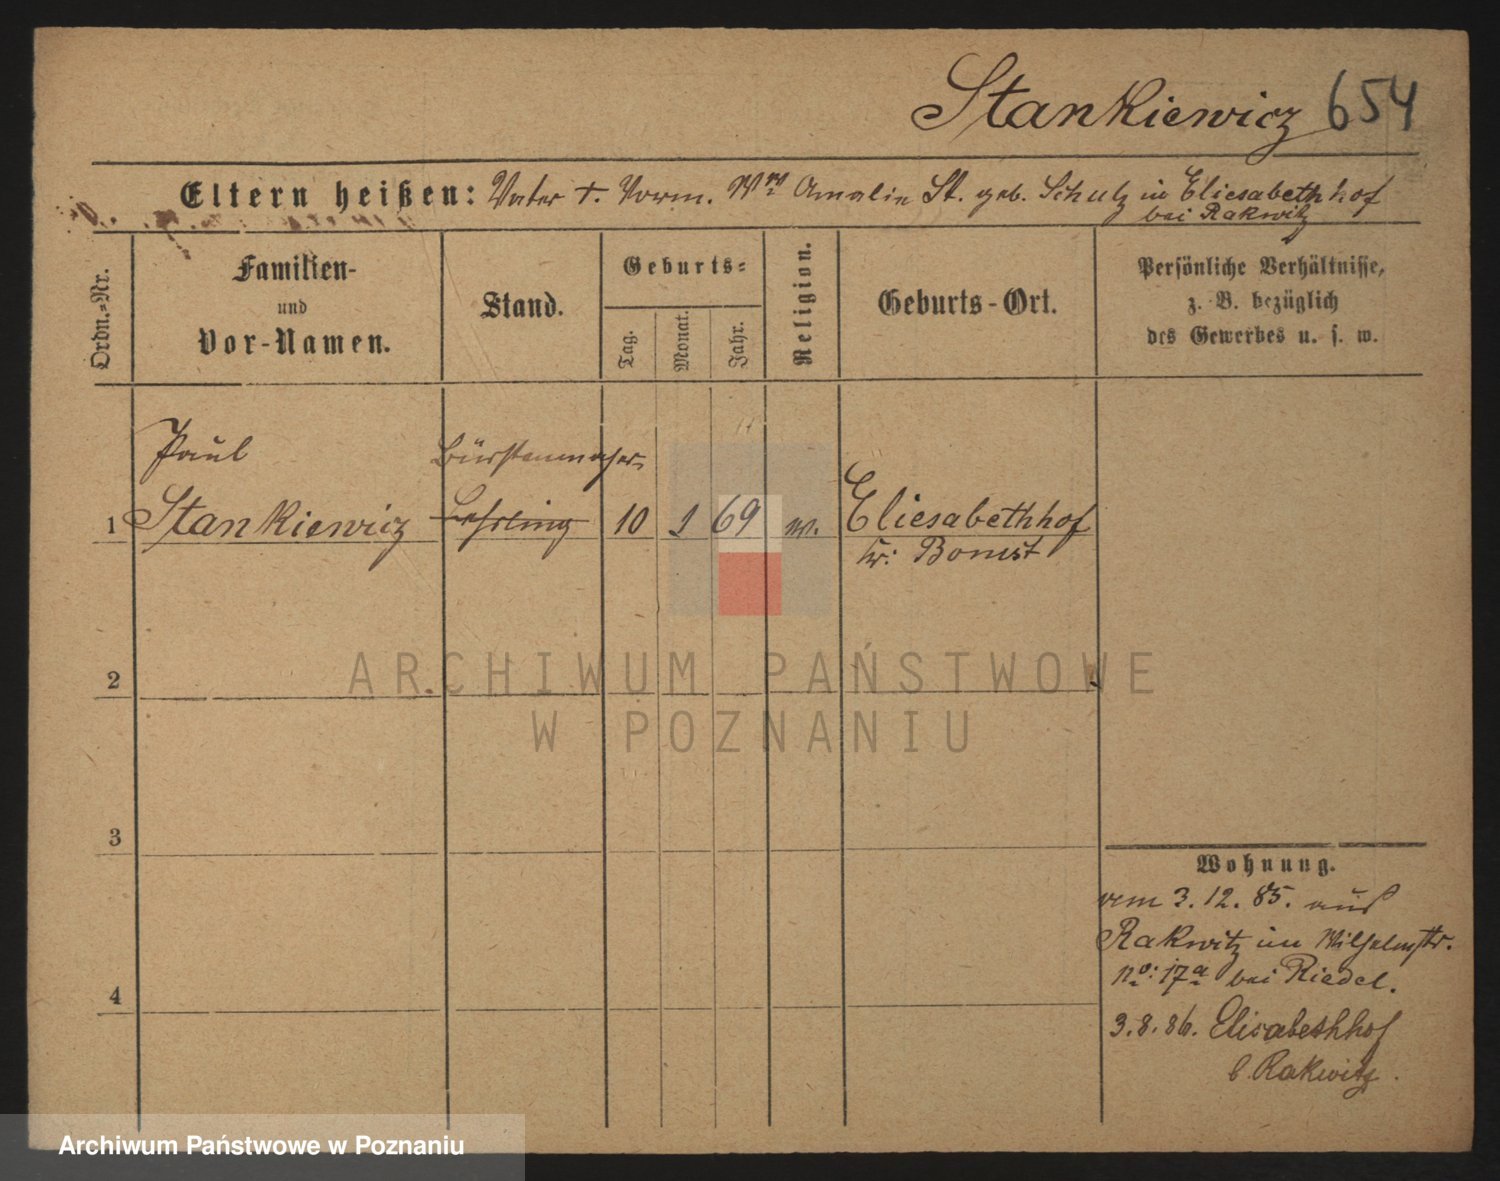 Stankiewicz 654
Eltern heißen: Vater †. Vorm. Ww Amalie St. geb. Schulz in Eliesabethhof
bei Rakwitz
Ordn.-Nr.
Familien-
und
Vor-Namen.
Stand.
Geburts-
Tag.
Monat.
Jahr.
Religion.
Geburts-Ort.
Persönliche Verhältnisse,
z. B. bezüglich
des Gewerbes u. s. w.
Paul Bürstenmacher
1 Stankiewicz Lehrling 10 1 69 Eliesabethhof
Kr: Bomst
2
3
4
Wohnung.
vom 3. 12. 85. aus
Rakwitz in Wilhelmstr.
No: 17a bei Riedel.
3. 8. 86. Elisabethhof
b. Rakwitz.
ARCHIWUM PAŃSTWOWE
W POZNANIU
Archiwum Państwowe w Poznaniu